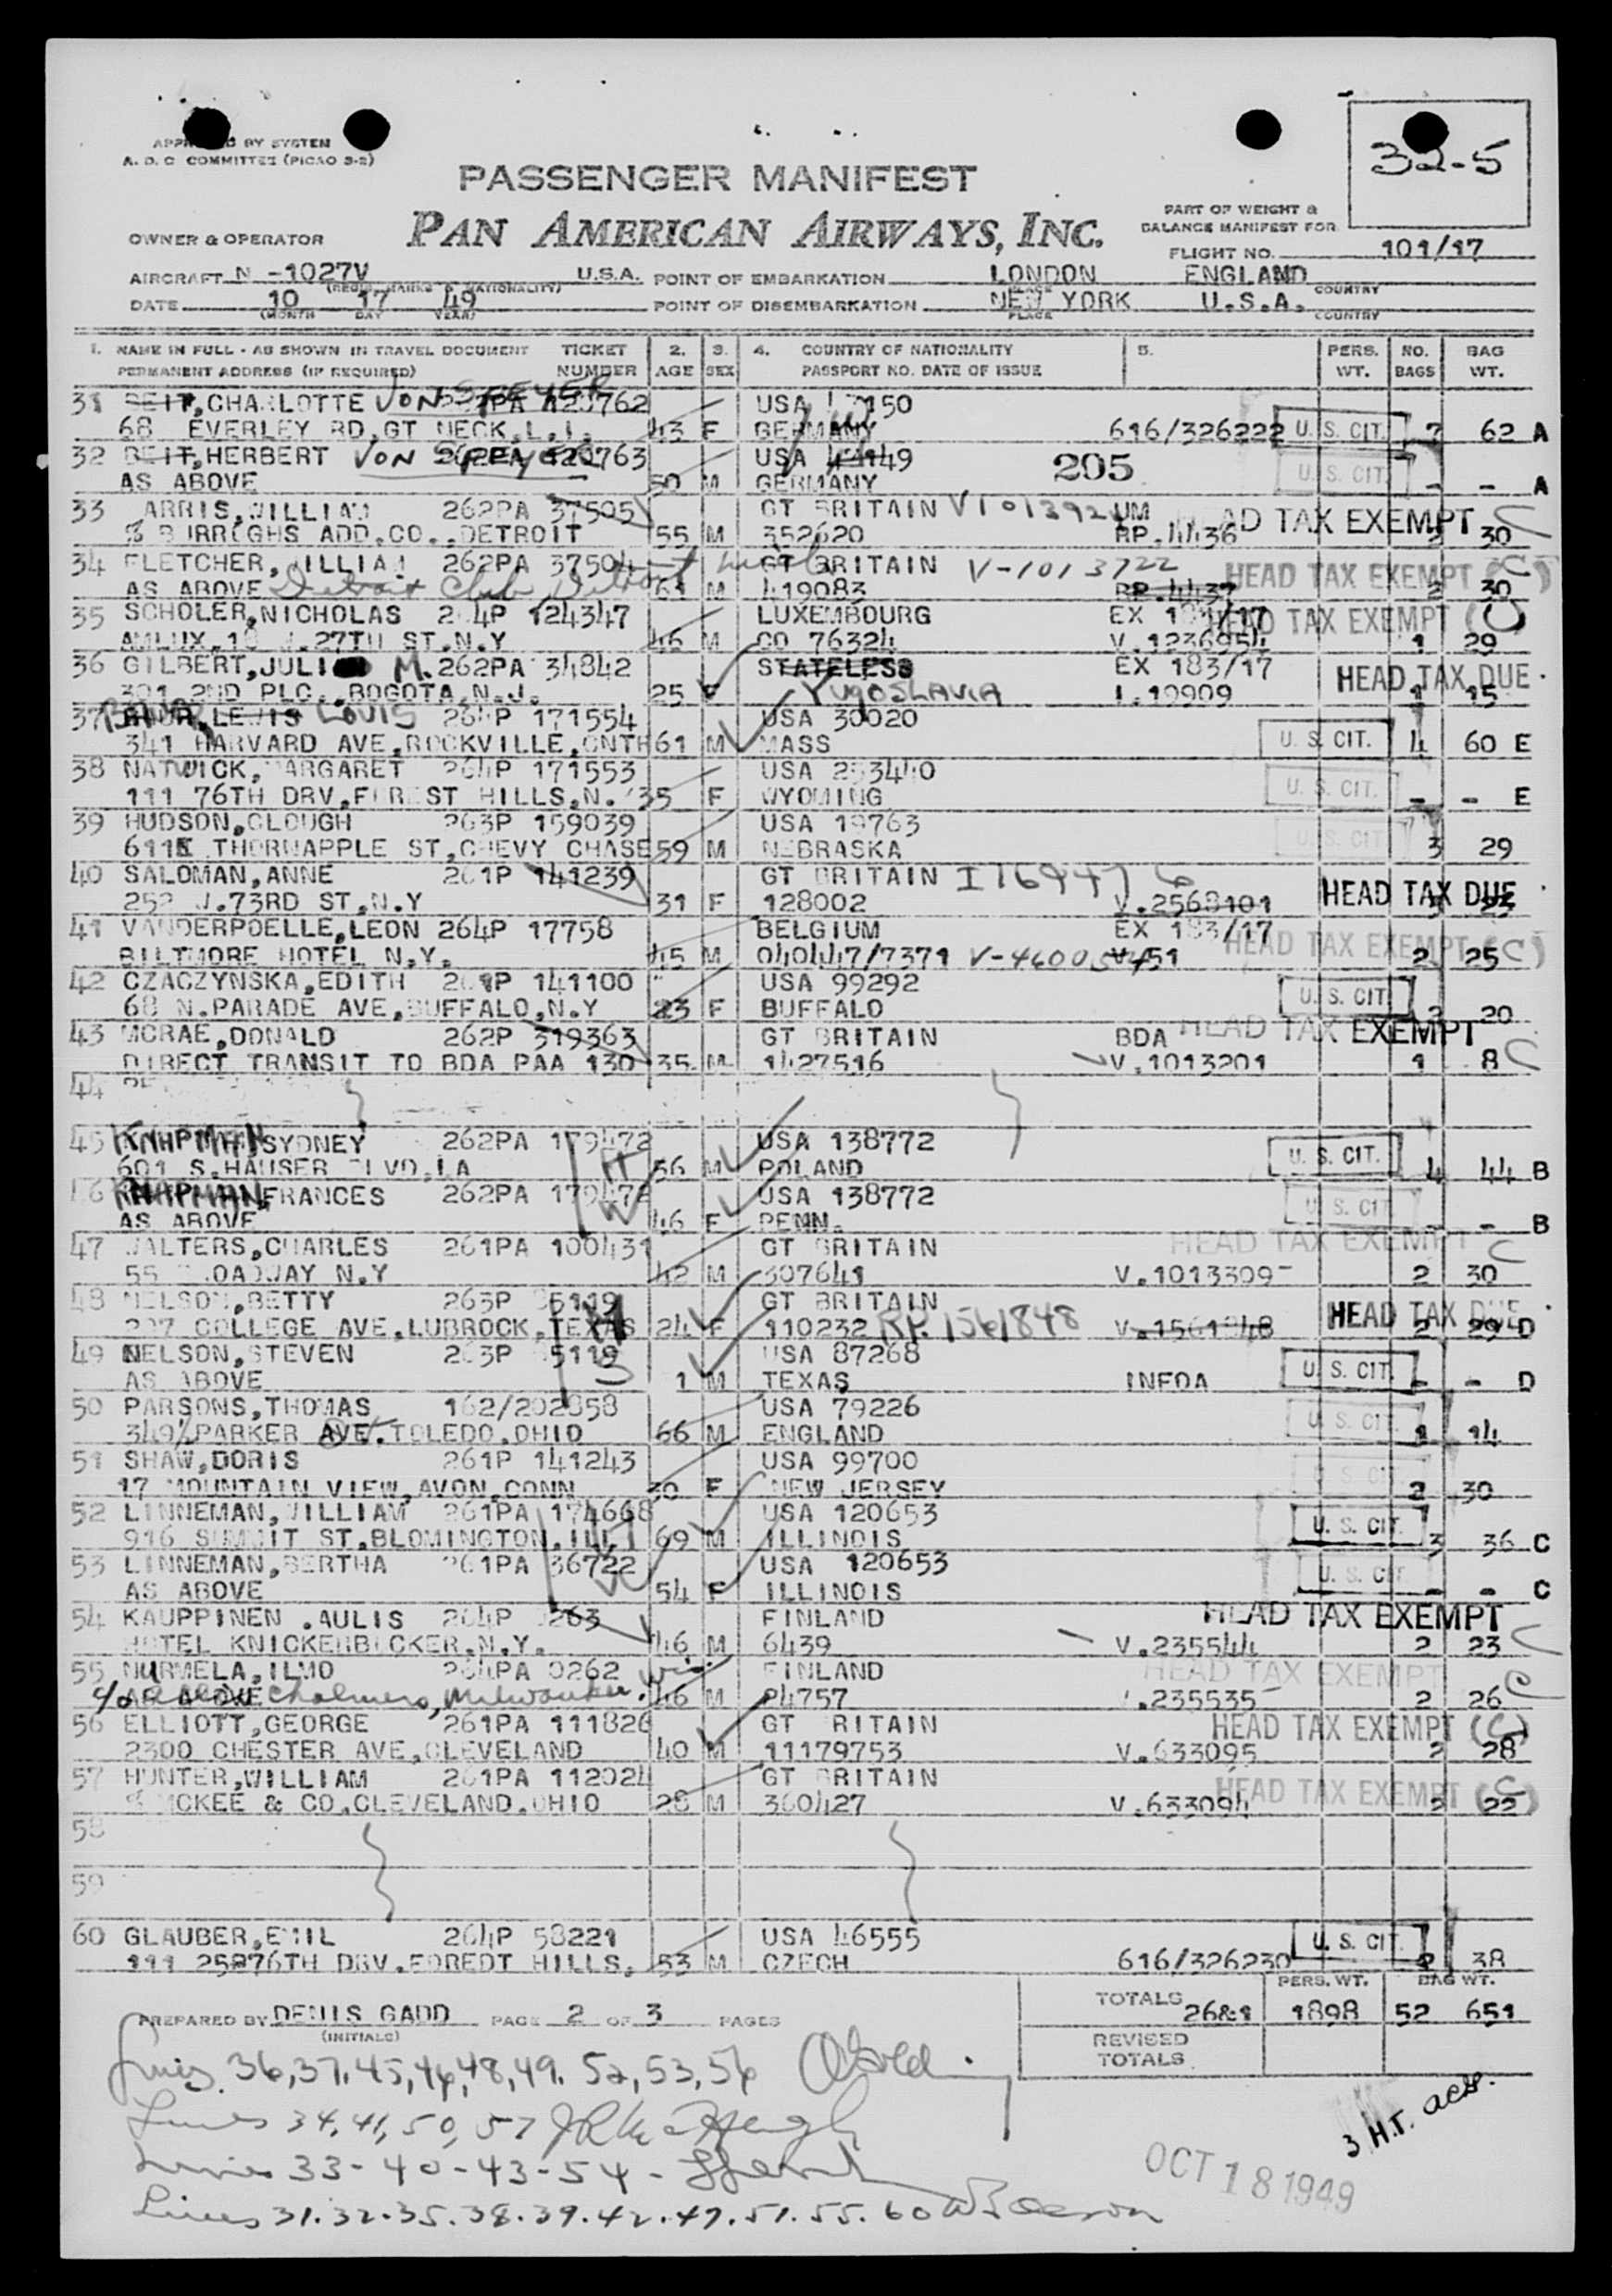 32-5
APPROVED BY SYSTEM
A. O. C COMMITTEE (PICAO S-2)
PASSENGER MANIFEST
PAN AMERICAN AIRWAYS, INC.
PART OF WEIGHT &
BALANCE MANIFEST FOR
OWNER & OPERATOR
FLIGHT NO. 101/17
AIRCRAFT N -1027V U.S.A. POINT OF EMBARKATION LONDON ENGLAND
(REGIS. MARKS & NATIONALITY) PLACE COUNTRY
DATE 10 17 49 POINT OF DISEMBARKATION NEW YORK U.S.A.
(MONTH DAY YEAR) PLACE COUNTRY
1. NAME IN FULL - AS SHOWN IN TRAVEL DOCUMENT TICKET 2. 3. 4. COUNTRY OF NATIONALITY 5. PERS. NO. BAG
PERMANENT ADDRESS (IF REQUIRED) NUMBER AGE SEX PASSPORT NO. DATE OF ISSUE WT. BAGS WT.
31 BEIT,CHARLOTTE VON SPEYER USA
68 EVERLEY RD,GT NECK,L.I. 43 F GERMANY 616/326222 U. S. CIT. 62 A
32 BEIT,HERBERT VON SPEYER 262PA 120763 USA 205 U. S. CIT.
AS ABOVE 50 M GERMANY - - A
33 ARRIS,WILLIAM 262PA 37505 GT BRITAIN UM HEAD TAX EXEMPT C
% BURROGHS ADD.CO.,DETROIT 55 M 352620 RP.4436 2 30
34 FLETCHER,WILLIAM 262PA 37504 GT BRITAIN V-1013722 HEAD TAX EXEMPT (C)
AS ABOVE Detroit Club Detroit Mich 61 M 419083 RP.4437 2 30
35 SCHOLER,NICHOLAS 264P 124347 LUXEMBOURG EX 181/17 HEAD TAX EXEMPT (C)
AMLUX,10 W.27TH ST.N.Y 46 M CO 76324 V.1236954 1 29
36 GILBERT,JULI M. 262PA 34842 STATELESS EX 183/17 HEAD TAX DUE
301 2ND PLC.,BOGOTA,N.J. 25 F YUGOSLAVIA I.19909 1 15
37 LEWIS LOUIS 264P 171554 USA 30020
341 HARVARD AVE,ROCKVILLE,CNTR 61 M MASS U. S. CIT. 4 60 E
38 NATWICK,MARGARET 264P 171553 USA 253440 U. S. CIT.
111 76TH DRV,FOREST HILLS,N.Y 35 F WYOMING - - E
39 HUDSON,CLOUGH 263P 159039 USA 19763 U. S. CIT.
6115 THORNAPPLE ST,CHEVY CHASE 59 M NEBRASKA 3 29
40 SALOMAN,ANNE 261P 141239 GT BRITAIN HEAD TAX DUE
252 W.73RD ST.N.Y 31 F 128002 V.2568101
41 VANDERPOELLE,LEON 264P 17758 BELGIUM EX 183/17 HEAD TAX EXEMPT (C)
BILTMORE HOTEL N.Y. 45 M 040447/7371 2 25
42 CZACZYNSKA,EDITH 261P 141100 USA 99292 U. S. CIT.
68 N.PARADE AVE,BUFFALO,N.Y 23 F BUFFALO 2 20
43 MCRAE,DONALD 262P 319363 GT BRITAIN BDA HEAD TAX EXEMPT
DIRECT TRANSIT TO BDA PAA 130 35 M 1427516 V.1013201 1 8 C
44
45 KNAPMAN SYDNEY 262PA 179472 USA 138772 U. S. CIT.
601 S.HAUSER BLVD,LA H 56 M POLAND 4 44 B
46 KNAPMAN,FRANCES 262PA 179472 USA 138772 U. S. CIT.
AS ABOVE W 46 F PENN. - - B
47 WALTERS,CHARLES 261PA 100431 GT BRITAIN HEAD TAX EXEMPT C
55 BROADWAY N.Y 42 M 307641 V.1013309 2 30
48 NELSON,BETTY 263P 35119 GT BRITAIN HEAD TAX DUE
207 COLLEGE AVE,LUBROCK,TEXAS M 24 F 110232 RP. 1561848 V.1561848 2 29 D
49 NELSON,STEVEN 263P 35119 USA 87268 U. S. CIT.
AS ABOVE S 1 M TEXAS INFDA - - D
50 PARSONS,THOMAS 162/202858 USA 79226 U. S. CIT.
349½PARKER AVE.TOLEDO.OHIO 66 M ENGLAND 1 14
51 SHAW,DORIS 261P 141243 USA 99700 U. S. CIT.
17 MOUNTAIN VIEW,AVON,CONN 30 F NEW JERSEY 2 30
52 LINNEMAN,WILLIAM 261PA 174668 USA 120653 U. S. CIT.
916 SUMMIT ST.BLOMINGTON,ILL H 69 M ILLINOIS 3 36 C
53 LINNEMAN,BERTHA 261PA 36722 USA 120653 U. S. CIT.
AS ABOVE W 54 F ILLINOIS - - C
54 KAUPPINEN .AULIS 264P 0263 FINLAND HEAD TAX EXEMPT
HOTEL KNICKERBOCKER,N.Y. 46 M 6439 V.235544 2 23 C
55 NURMELA,ILMO 264PA 0262 FINLAND HEAD TAX EXEMPT
AS ABOVE c/o Allis Chalmers, Milwaukee, Wis. 46 M P4757 V.235535 2 26 C
56 ELLIOTT,GEORGE 261PA 111826 GT BRITAIN HEAD TAX EXEMPT (C)
2300 CHESTER AVE,CLEVELAND 40 M 11179753 V.633095 2 28
57 HUNTER,WILLIAM 261PA 112024 GT BRITAIN HEAD TAX EXEMPT (C)
% MCKEE & CO,CLEVELAND.OHIO 28 M 360427 V.633094 2 22
58
59
60 GLAUBER,EMIL 264P 58221 USA 46555 U. S. CIT.
111 25876TH DRV.FOREDT HILLS. 53 M CZECH 616/326230 2 38
PERS. WT. BAG WT.
TOTALS 26&1 1898 52 651
PREPARED BY DENIS GADD PAGE 2 OF 3 PAGES
(INITIALS)
REVISED
TOTALS
Lines 36,37,45,46,48,49. 52,53,56
Lines 34,41,50,57
Lines 33-40-43-54-
Lines 31.32.35.38.39.42.47.51.55.60
3 H.T. acss.
OCT 18 1949